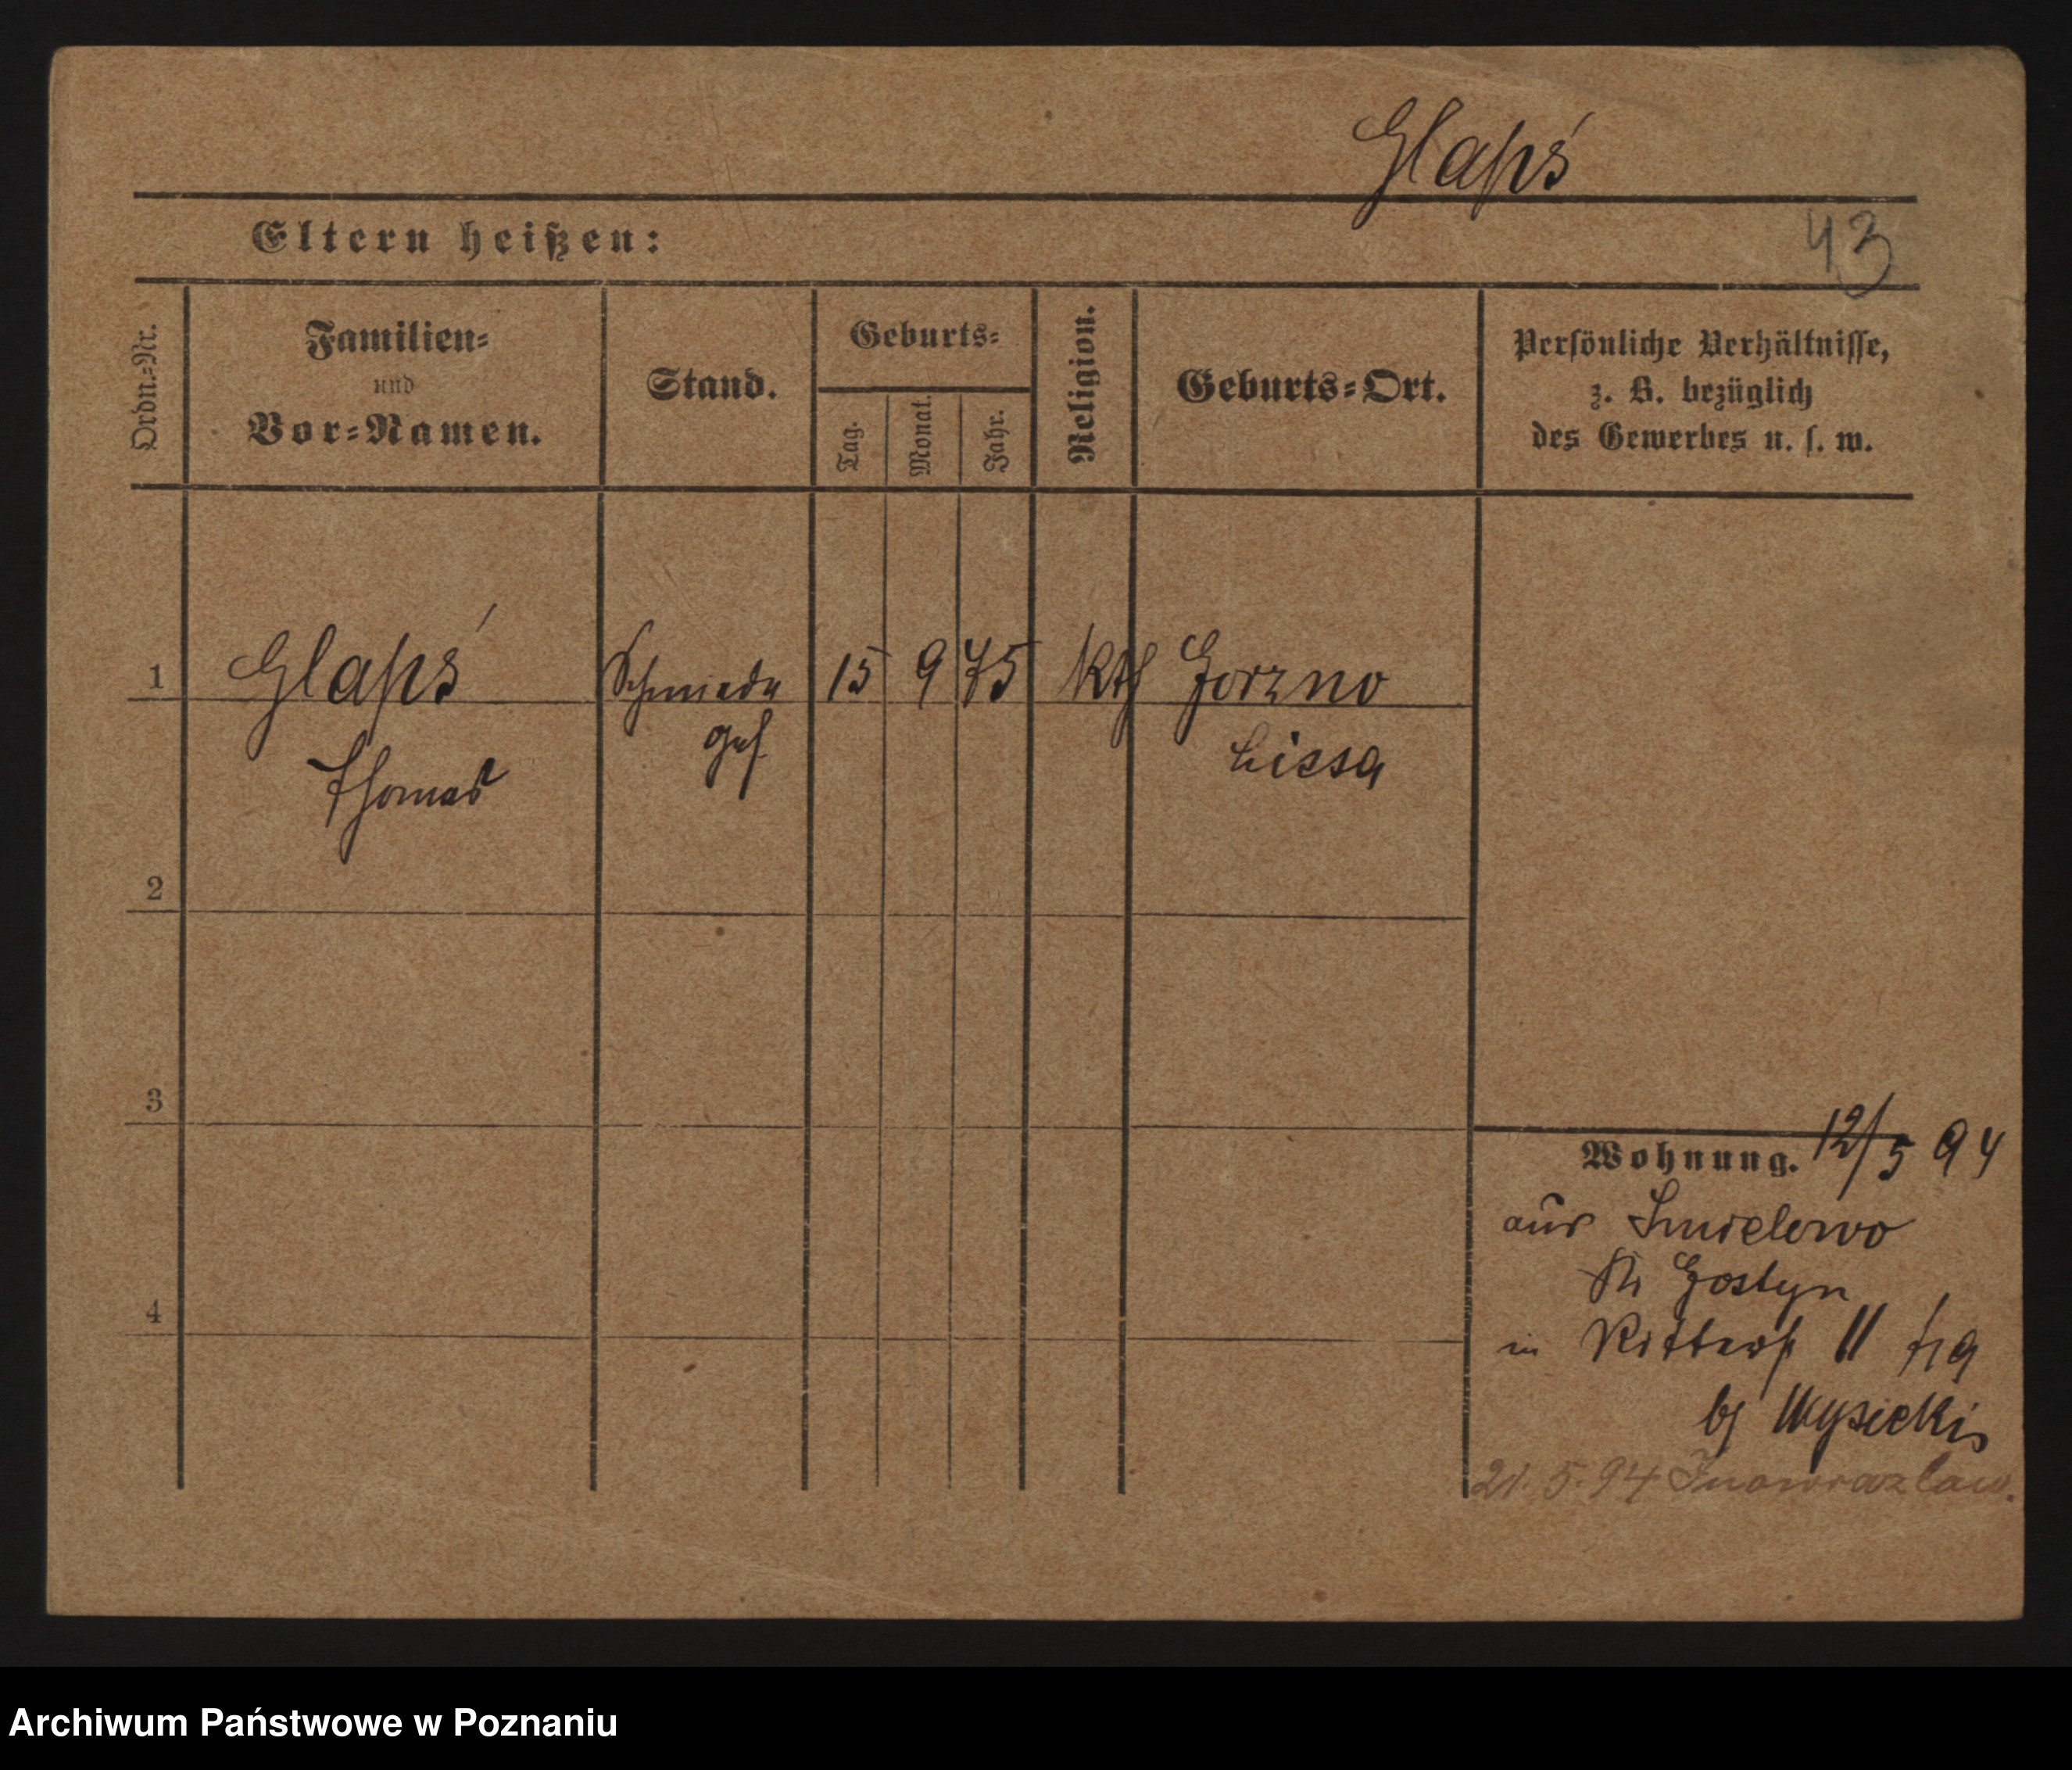 Glapś
43
Eltern heißen:
Ordn.-Nr.
Familien-
und
Vor-Namen.
Stand.
Geburts-
Tag.
Monat.
Jahr.
Religion.
Geburts-Ort.
Persönliche Verhältnisse,
z. B. bezüglich
des Gewerbes u. s. w.
1 Glapś Schmiede 15 9 75 kth Gorzno
ges Lissa
Thomas
2
3
4
Wohnung. 12/5 94
aus Smielowo
Kr Gostyn
in Ritterst 11
bj Wysicki
21.5.94 Inowrazlaw.
Archiwum Państwowe w Poznaniu